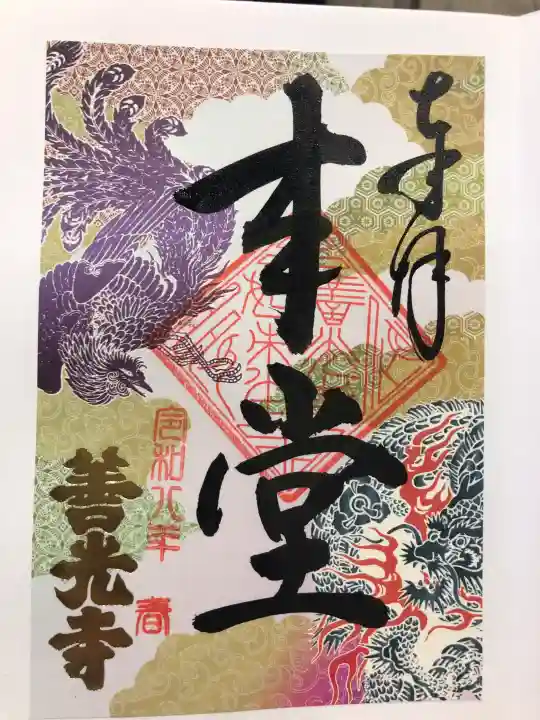 奉拝
本堂
令和八年 春
善光寺